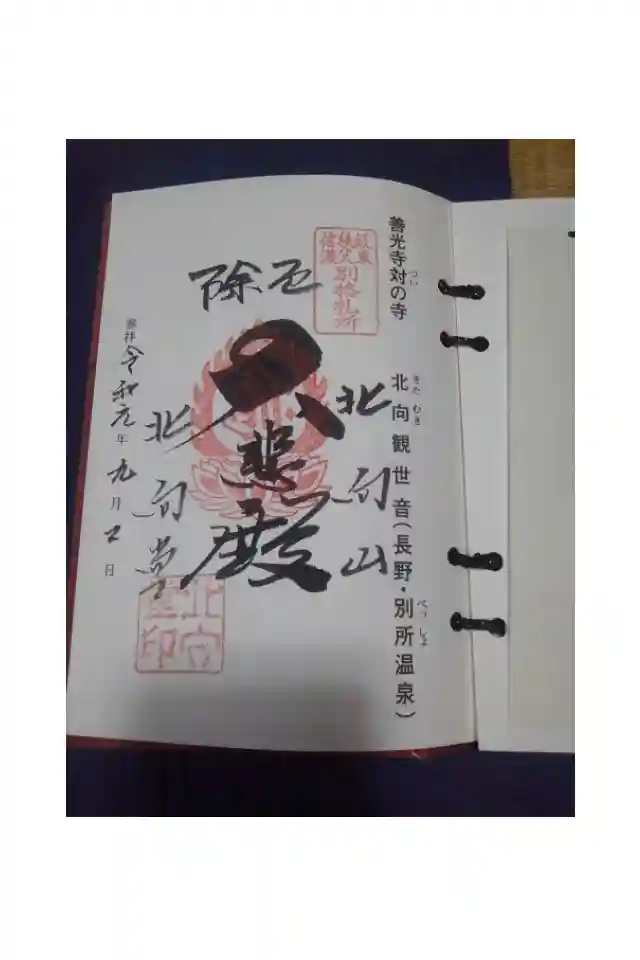 善光寺対の寺
つい
北向観世音(長野・別所温泉)
きたむき
べっしょ
坂東
秩父
信濃
別格札所
厄除
北向山
大悲殿
北向堂
奉拝 令和元年九月 日
北向
堂印